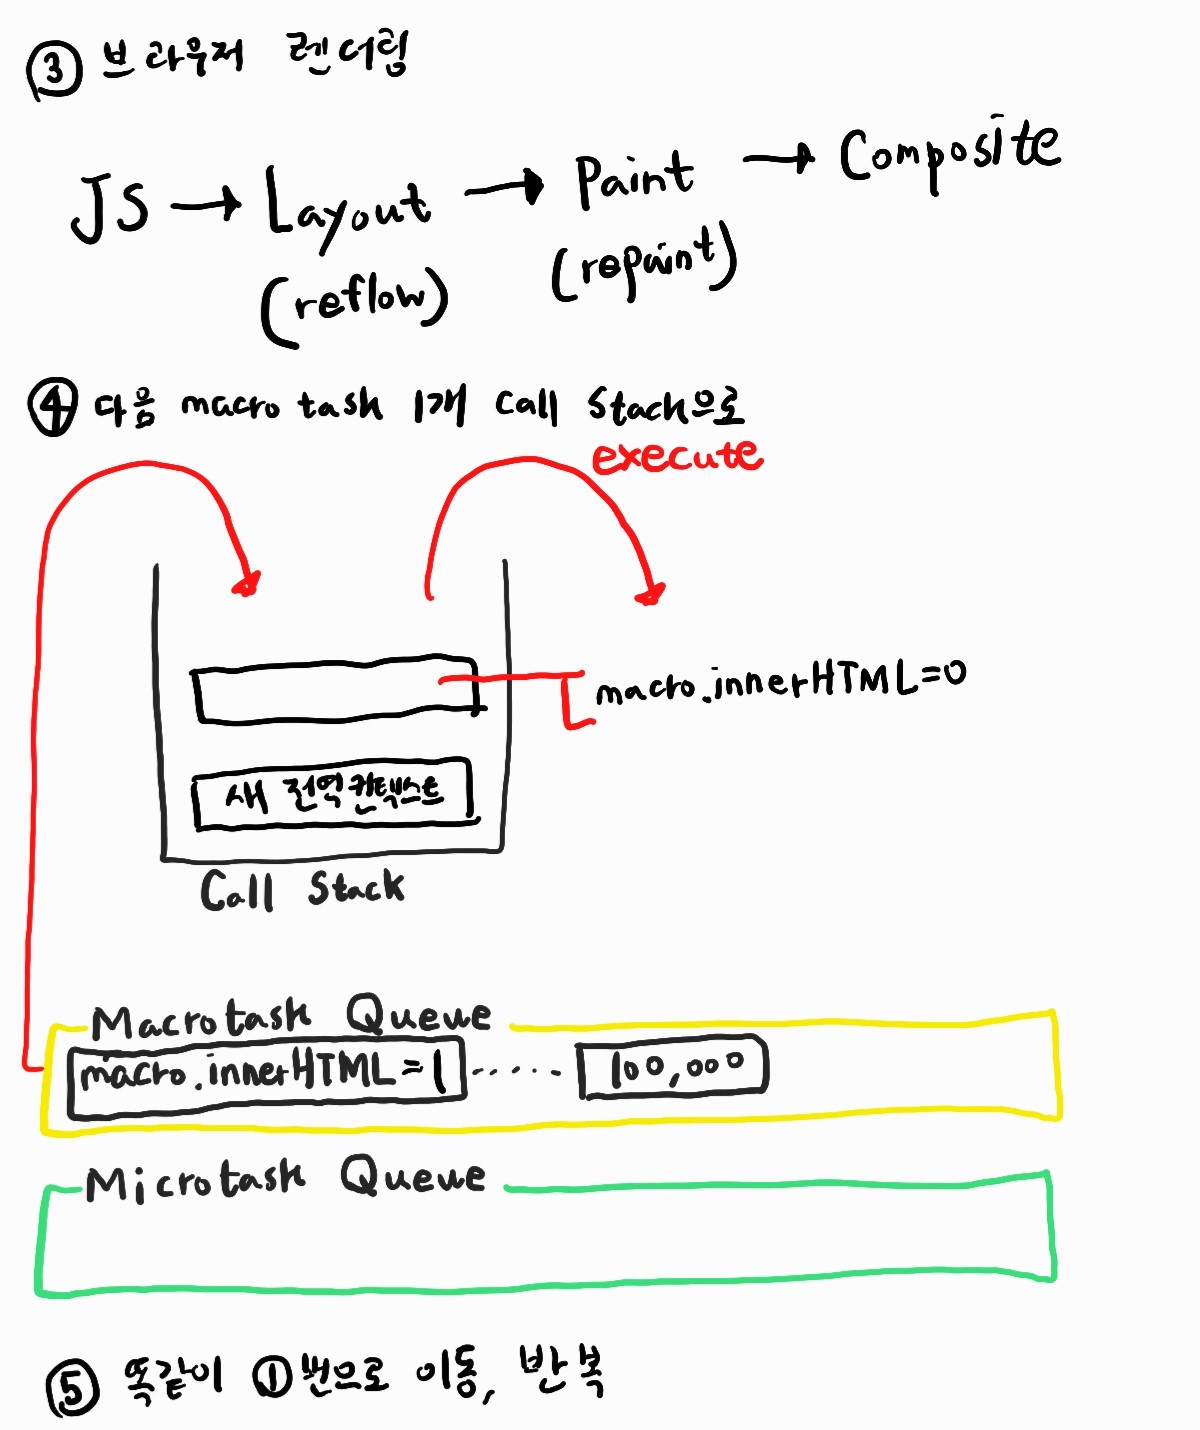 ③ 브라우저 렌더링
JS → Layout → Paint → Composite
(reflow) (repaint)
④ 다음 macro task 1개 Call Stack으로
execute
macro.innerHTML=0
새 전역컨텍스트
Call Stack
Macrotask Queue
macro.innerHTML=1 ..... 100,000
Microtask Queue
⑤ 똑같이 ①번으로 이동, 반복